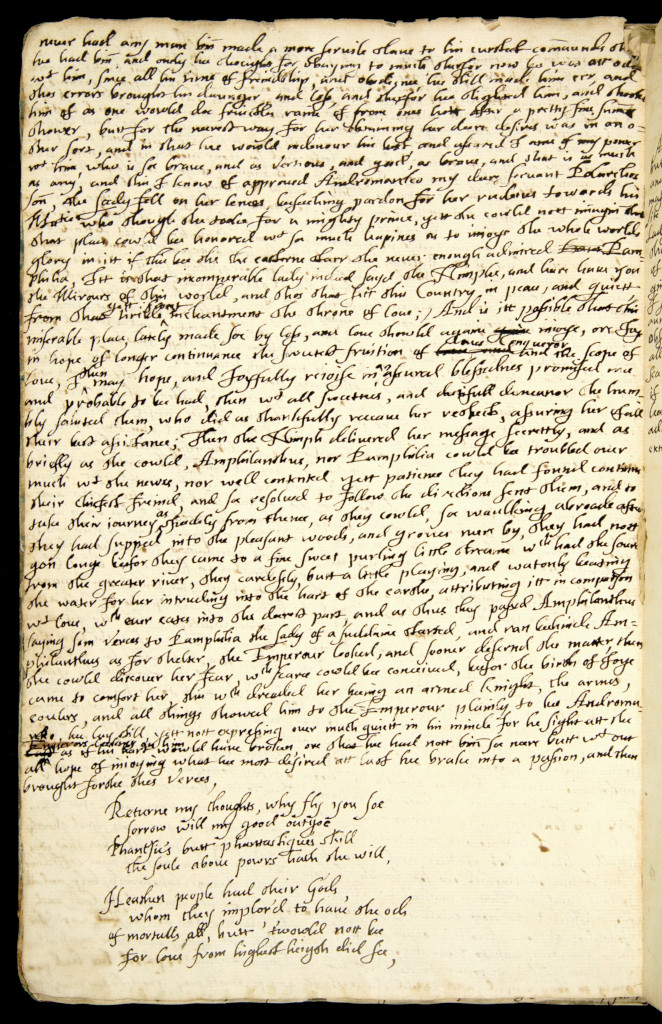 never had any man bin made a more servile slave to his cruelest comaunds then
hee had bin, and onely hee thought for obaying to much therfor now hee was att ods
wt him, since all his time of friendship, and obedience hee still made him err, and
thos errors brought him daunger, and loss, and therfor hee slighted him, and shooke
him of as one would doe sudden raine of from ones hatt after a pretty fine
shower, butt for the nearest way. for her shunning her deere desires was in an o=
ther sort, and in that hee would indeavour his best and assured of my power
wt him, who is soe brave, and as vertious, and good, as brave, and that is as much
as any, and this I know of approved Andromarko my deere servant Polarchos
son, she sadly fell on her knees, beseeching pardon for her rudenes towards his
who though she tooke for a mighty prince, yett she could nott imagin that
that place could bee honored wt soe much hapines as to injoye the whole worlds
glory in itt if this bee she the easterne starr she never enough admired Pam=
philia, Itt is that incomperable lady indeed sayd the Nimphe, and heere have you
the Mirours of this world, and thos that sett this Country in peace, and quiett
from that last inchantment the throne of love; And is itt possible that this
miserable place lately made soe by loss, and love should againe injoye, ore bee
in hope of longer continuance the sweetest fruition of loves Conqueror and the scope of
love, then I may hope, and Joyfully rejoise in assured blessednes promised mee
and probable to bee had, then wt all sweetnes, and dutifull demeanor she hum=
bly saluted them, who did as thankfully receave her respects, assuring her of all
their best assistance; Then the Nimph delivered her message secrettly, and as
briefly as she could, Amphilanthus, nor Pamphilia could bee troubled over
much wt the newes, nor well contented yett patience they had found continue
their chiefest freind, and soe resolved to follow the directions sent them, and to
take their journey as speedily from thence, as they could, soe waulking abroade after
they had supped into the pleasant woods, and groves neere by, they had nott
gon longe beefor they came to a fine sweet purling little streame wch had the source
from the greater river, they carelessly, butt a little playing, and watonly beating
the water for her intruding into the hart of the earthe, attributing itt in comparison
wt love, wch ever eates into the deerest part, and as thus they passed Amphilanthus
saying som verces to Pamphilia the lady of a suddaine started, and ran behinde Am=
philanthus as for shelter, the Emperour looked, and sooner deserned the matter then
she could discover her fear, wch feare could bee conceived, beefor the birth of Joye
came to comfort her, this wch dreaded her beeing an armed knight, the armes,
coulers, and all things showed him to the Emperour plainly to bee Andromar
ko, hee lay still, yett nott expressing over much quiett in his minde for his sight att the
as if his hart would have broken, ore that hee had nott bin soe neere butt wt out
all hope of injoying what hee most desired att last hee brake into a passion, and then
brought forthe thes verces,
Returne my thoughts, why fly you soe
sorrow will my good outgoe
Phantsie's butt phantastiques skill
the soule above powrs hath the will,
Heathen people had their Gods
whom they implor'd to have the ods
of mortalls all, butt 'twould nott bee
for love from highest heigth did see,